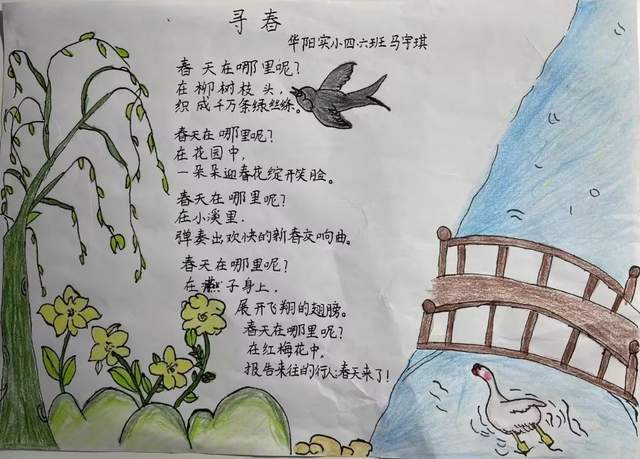 寻春
华阳实小四.六班 马宇琪
春天在哪里呢？
在柳树枝头，
织成千万条绿丝绦。
春天在哪里呢？
在花园中，
一朵朵迎春花绽开笑脸。
春天在哪里呢？
在小溪里．
弹奏出欢快的新春交响曲。
春天在哪里呢？
在燕子身上，
展开飞翔的翅膀。
春天在哪里呢？
在红梅花中，
报告来往的行人春天来了！